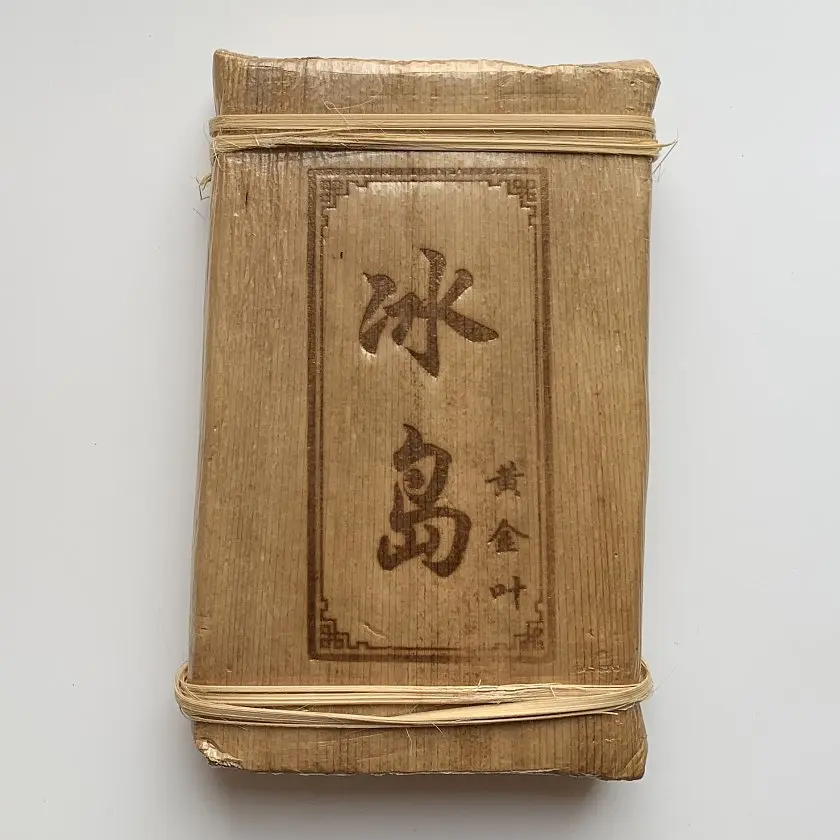 冰岛
黄金叶